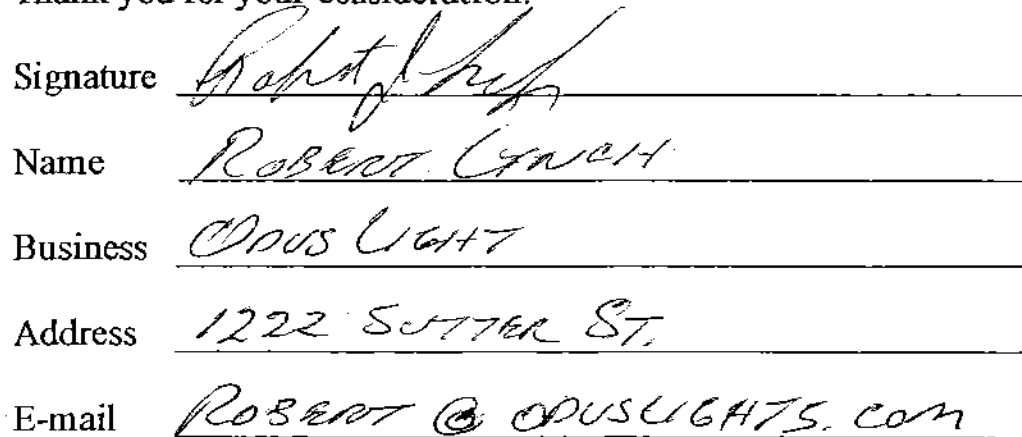 Thank you for your consideration.
Signature Robert J. Lynch
Name ROBERT LYNCH
Business OPUS LIGHT
Address 1222 SUTTER ST.
E-mail ROBERT @ OPUSLIGHTS.COM